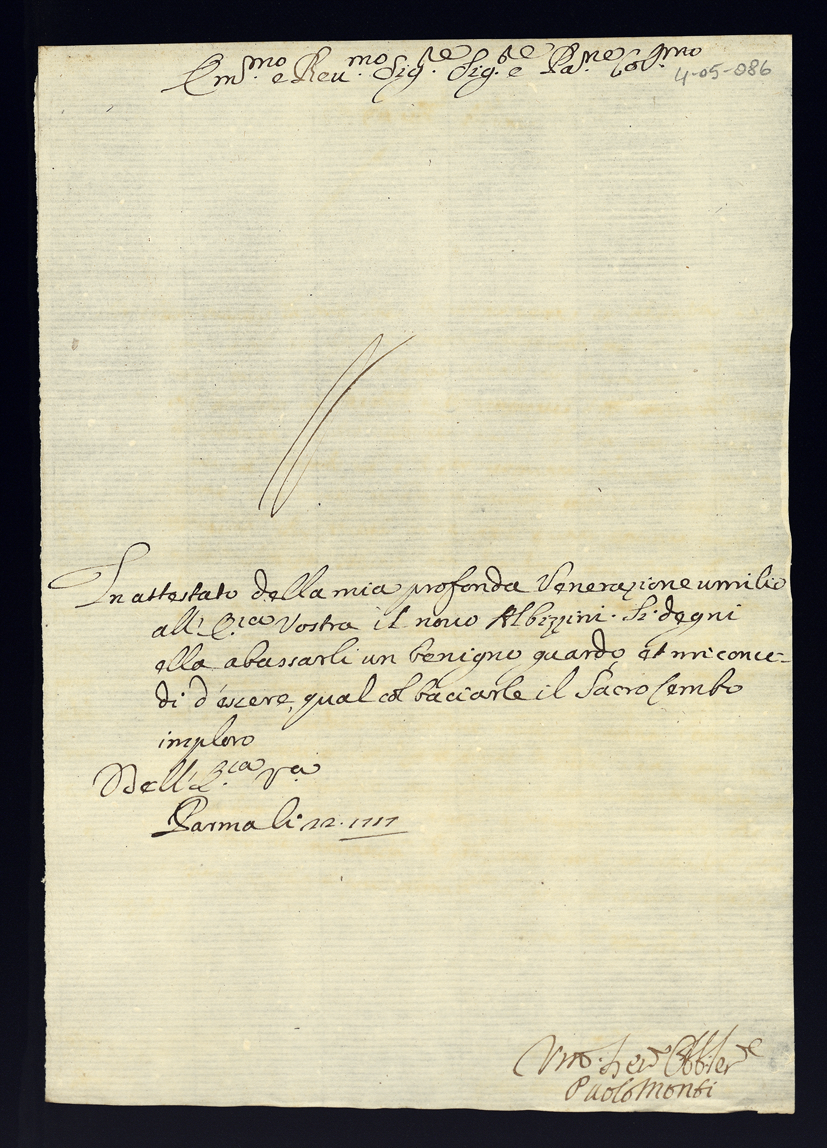 Em.mo e Reu.mo Sig.re Sig.re e Pa.ne Col.mo
4-05-086
In attestato della mia profonda Venerazione umilio
all' E.za Vostra il nouo Albizzini. Si degni
ella abassarli un benigno guardo, et mi conce-
di d'essere, qual col bacciarle il Sacro Lembo
imploro
Dell' E.za V.a
Parma li 22. 1717
Vmo. Ser.e Obb.
Paolo Monti